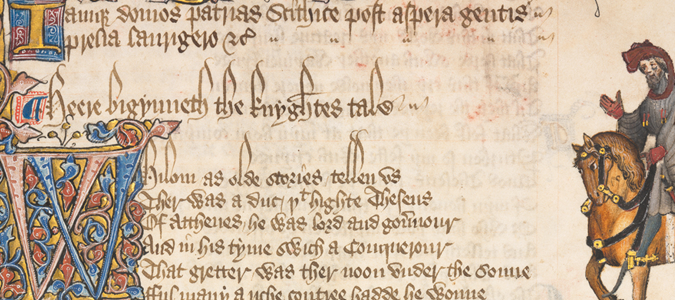 Iamq; domos patrias Scithice post aspera gentis
prelia laurigero &c
Heere bigynneth the knyghtes tale
Whilom as olde stories tellen vs
Ther was a duc þͭ highte Theseus
Of Atthenes he was lord and gou̓nour
And in his tyme swich a Conquerour
That gretter was ther noon vnder the sonne
fful many a riche contree hadde he wonne